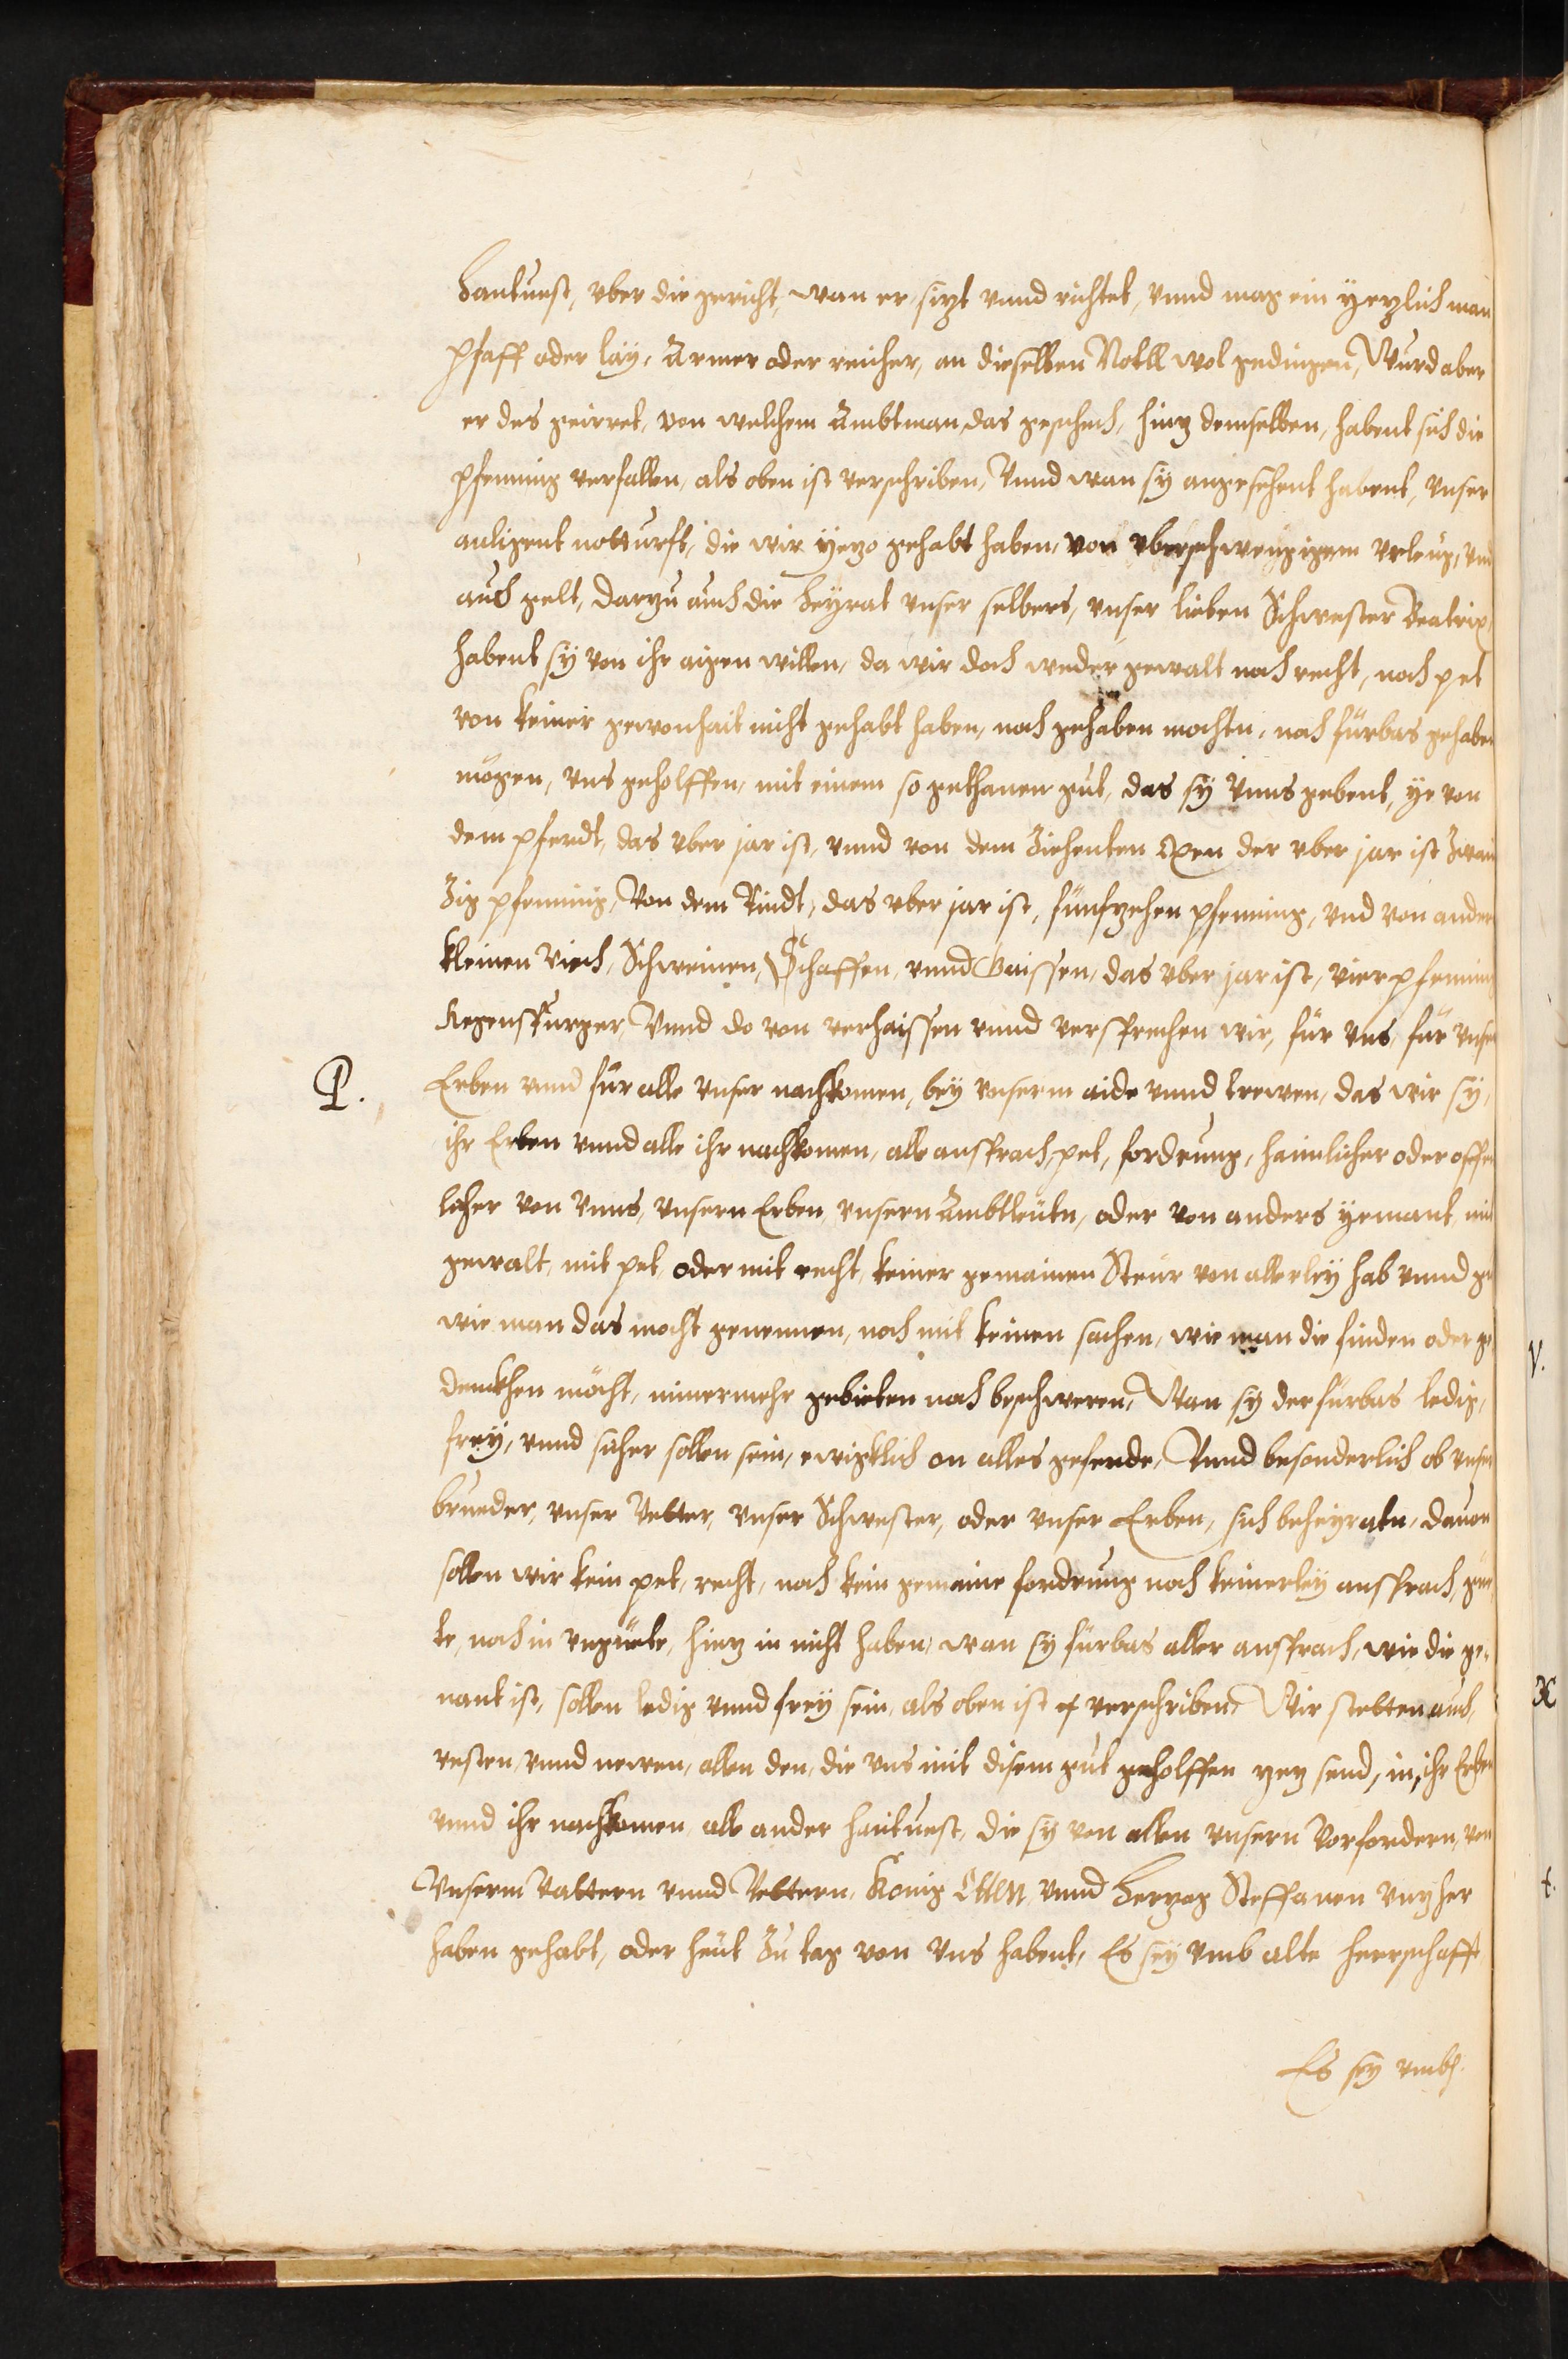 Hantuest, vber die gericht, wan er sizt vnnd richtet, vnnd mag ein yezlich man
pfaff oder lay, Armer oder reicher, an dieselben Notll wol gedingen, Wurd aber
er des geirret, von welchem Ambtman, das geschech, hinz demselben, habent sich die
pfenning verfallen, als oben ist verschriben, Vnnd wan sy angesehent habent, vnser
anligent notturft, die wir yezo gehabt haben, von vberschwengigem vrleug, vnd
auch gelt, darzu auch die Heyrat vnser selbers, vnser lieben Schwester Beatrix,
habent sy von ihr aigen willen, da wir doch weder gewalt noch recht, noch pet
von keiner gewonhait nicht gehabt haben, noch gehaben mochtn, noch fürbas gehaben
mögen, vns geholffen, mit einem so gethanen gut, das sy vnns gebent, ye von
dem pferdt, das vber jar ist, vnnd von dem Ziehenten Oxen der vber jar ist Zwain
Zig pfenning, Von dem Rindt, das vber jar ist, fünfzehen pfenning, vnd von ander
kleinen Viech, Schweinen, Schaffen, vnnd Gaissen, das vber jar ist, vier pfenning
Regenspurger, Vnnd do von verhaissen vnnd versprechen wir, für vns, für vnser
P. Erben vnnd für alle vnser nachkomen, bey vnserm aide vnnd trewen, das wir sy,
ihr Erben vnnd alle ihr nachkomen, alle ansprach, pet, fordrung, haimlicher oder offen
licher von vnns, vnsern Erben, vnsern Ambtleütn, oder von anders yemant, mit
gewalt, mit pet, oder mit recht, keiner gemainen Steur von allerley hab vnnd gu
wie man das mocht genennen, noch mit keinen sachen, wie man die finden oder ge
denckhen möcht, nimermehr gebieten noch beschweren, Wan sy der fürbas ledig,
frey, vnnd sicher sollen sein, ewigklich on alles geferde, Vnnd besonderlich ob vnser
brueder, vnser Vetter, vnser Schwester, oder vnser Erben, sich beheyratn, dauon
sollen wir kein pet, recht, noch kein gemaine fordrung noch keinerley ansprach, gue
te, noch in vngüete, hinz in nicht haben, wan sy fürbas aller ansprach, wie die ge-
nant ist, sollen ledig vnnd frey sein, als oben ist verschriben, Wir stetten auch,
vesten, vnnd newen, allen den, die vns mit disem gut geholffen yez send, in, ihr Erben
vnnd ihr nachkomen, alle ander hantuest, die sy von allen vnsern Vorfordern, von
Vnserm Vattern vnnd Vettern, König Otten vnnd Herzog Steffanen vnzher
haben gehabt, oder heüt Zu tag von vns habent, Es sey vmb alte herrschafft
Es sey vmb
V.
X
t.